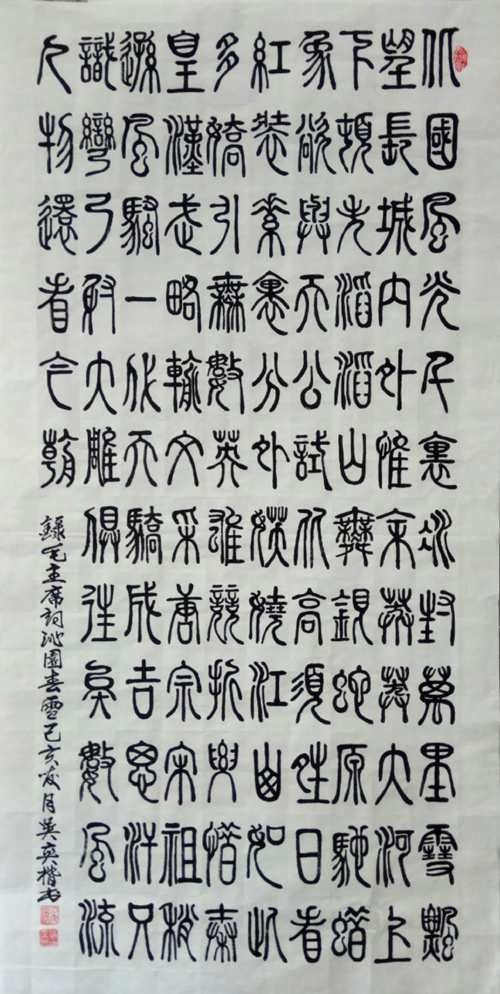 北國風光千裏冰封萬里雪飄
望長城内外惟余莽莽大河上
下頓失滔滔山舞銀蛇原馳蠟
象欲與天公試比高須晴日看
紅裝素裹分外妖嬈江山如此
多嬌引無數英雄競折腰惜秦
皇漢武略輸文采唐宗宋祖稍
遜風騷一代天驕成吉思汗只
識彎弓射大雕俱往矣數風流
人物還看今朝
錄毛主席詞沁園春雪己亥月吳英楷书